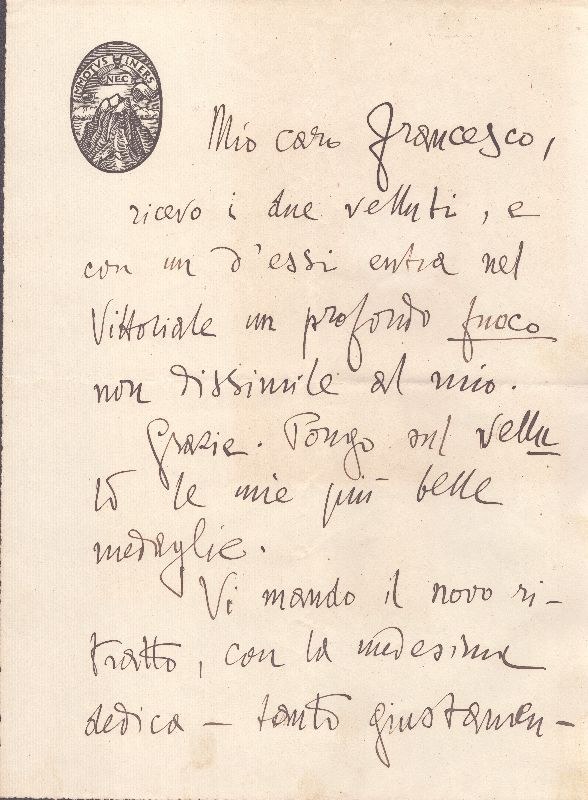 IMMOTVS NEC INERS
Mio caro Francesco,
ricevo i due velluti, e
con un d'essi entra nel
Vittoriale un profondo fuoco
non dissimile al mio.
Grazie. Pongo sul vellu
to le mie più belle
medaglie.
Vi mando il novo ri-
tratto, con la medesima
dedica – tanto giustamen-